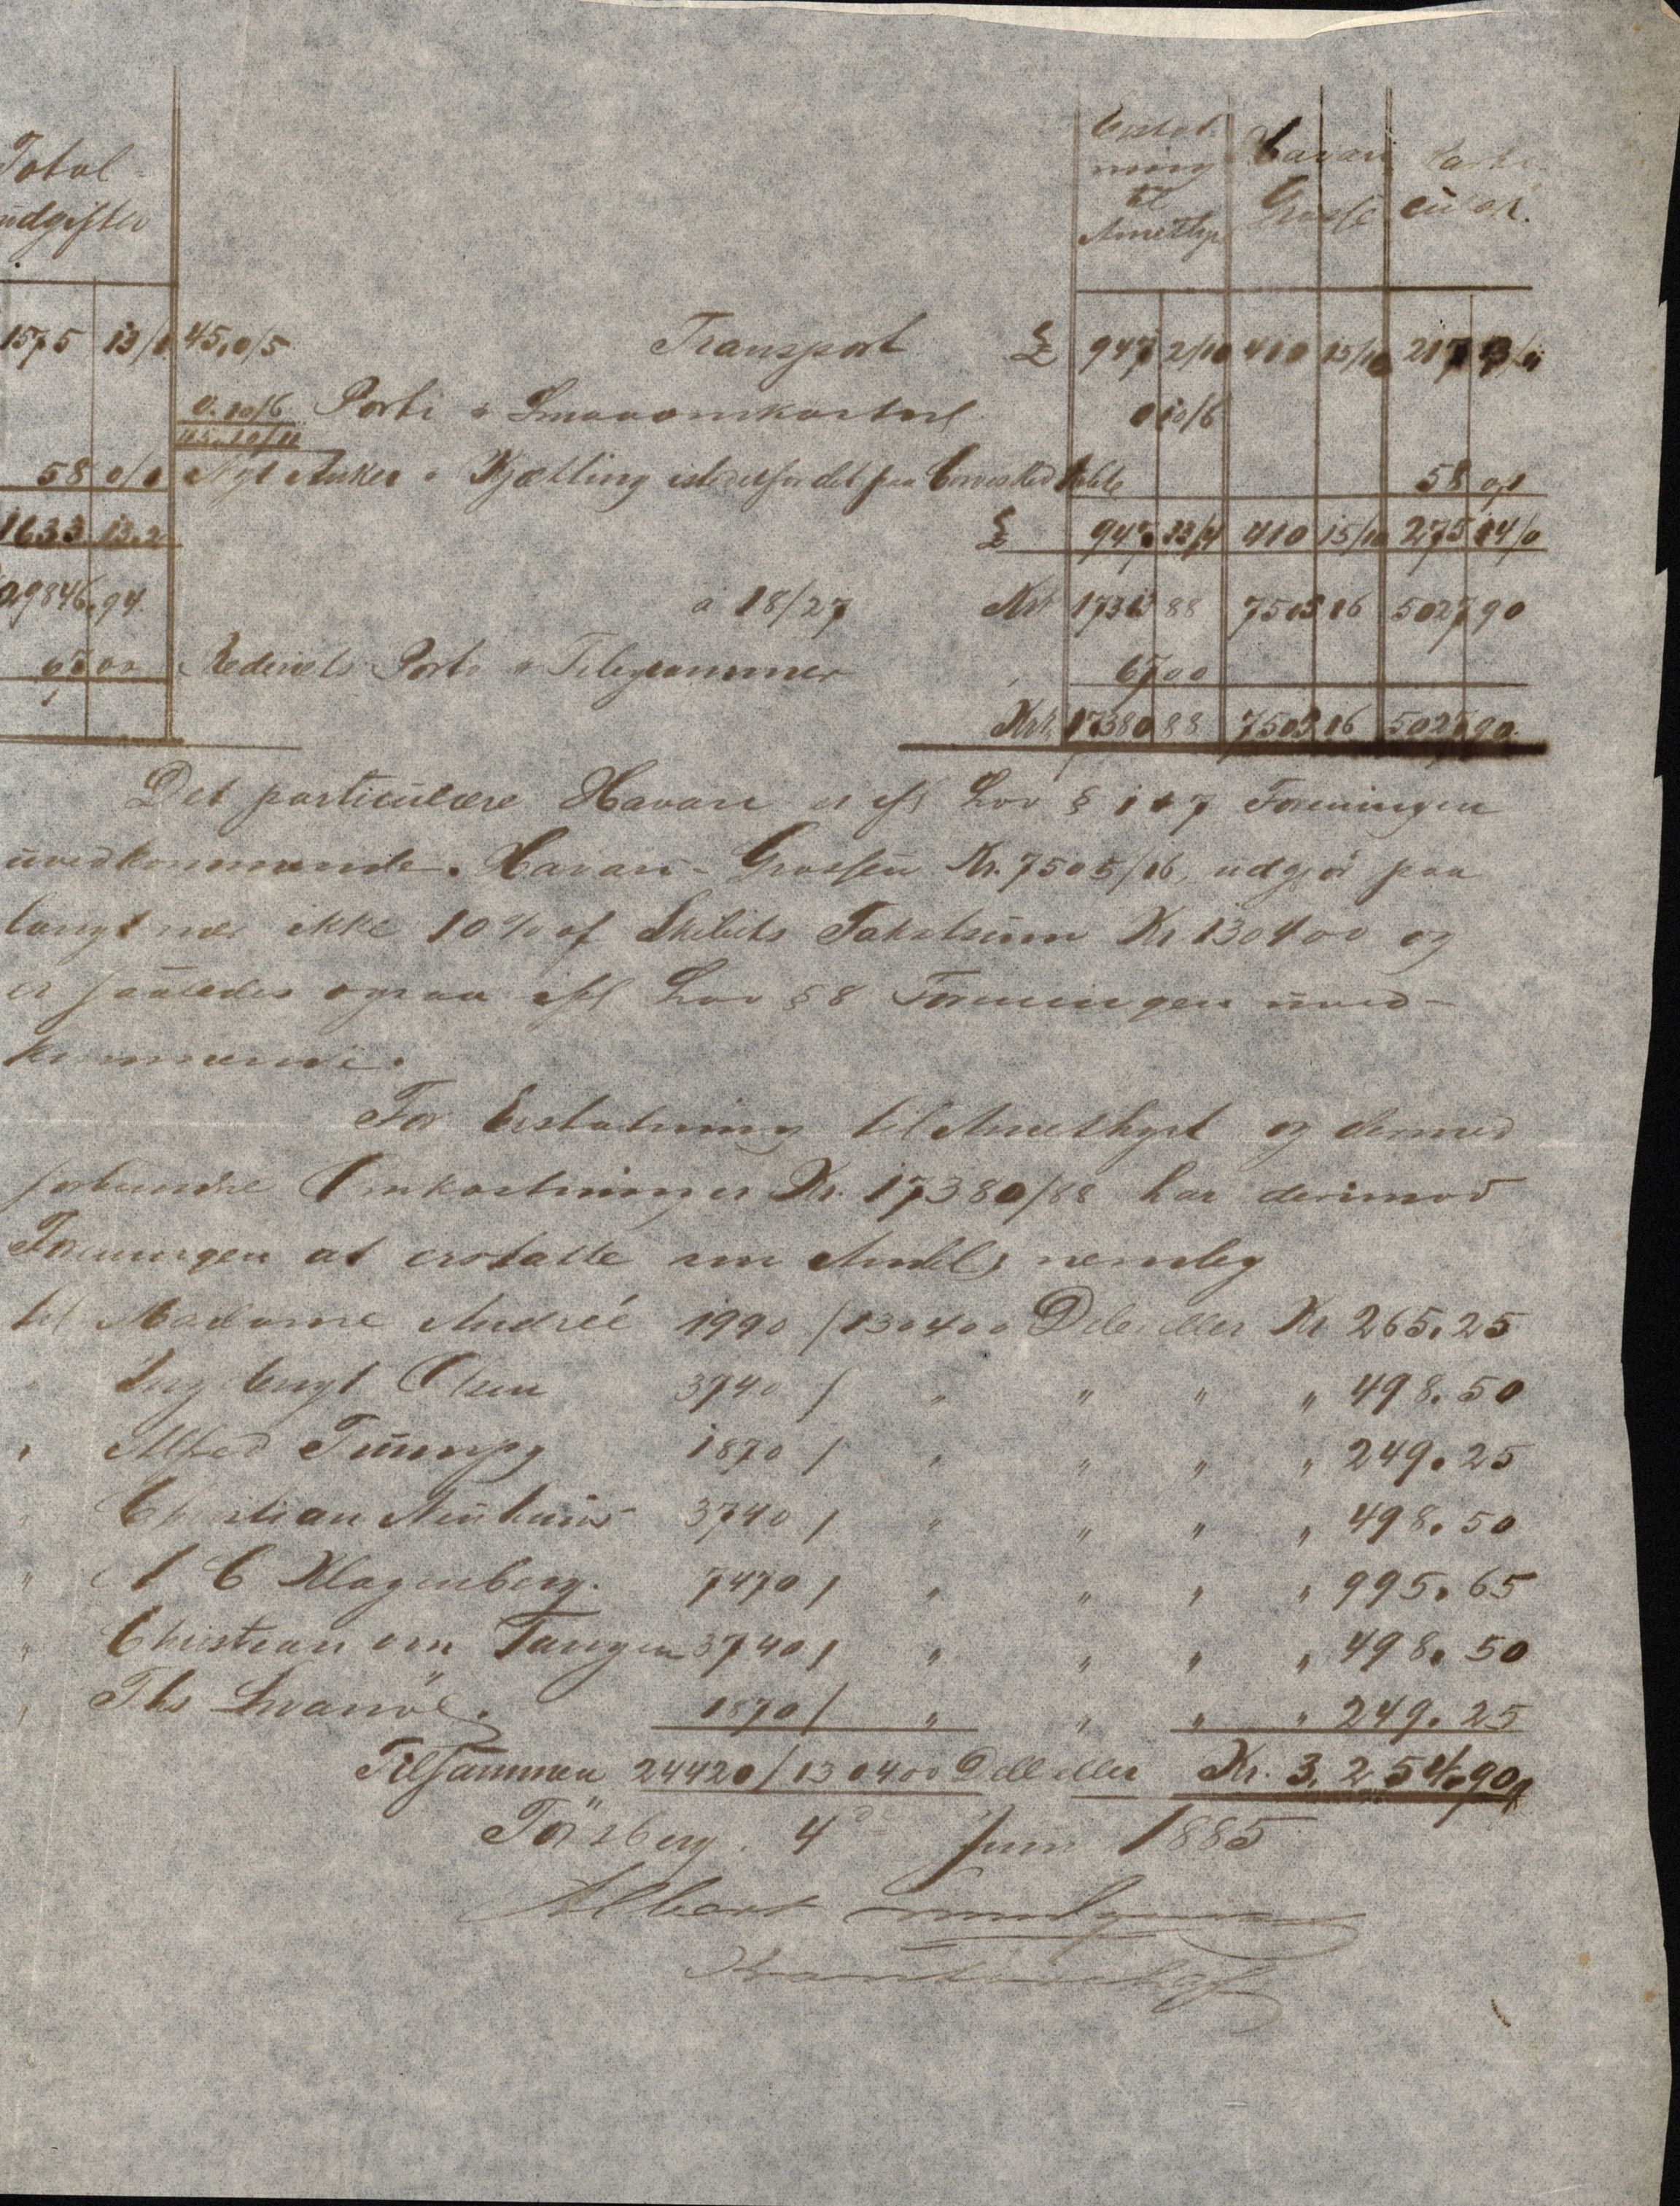 Total
udgifter
Erstat
ning
til
Amethyst
Havari
Grosse
Parti
culær.
1575 13/ 45,0/5 Transport £ 947 2/10 410 15/10 217
0.10/6 Porto & Smaaomkostn 0 10/6
45.10/11
58 0/0 Nyt Anker & Kjætting istedetfor det paa 58 0/0
1633.13.2 £ 947. 13/4 410 15/10 275 14/0
29846,94. a 18/27 Kr 17313 88 7505 16 5027 90
67 00 Rederiets Porto & Telegrammer 67 00
Kr. 17380 88 7505 16 5027 90.
Det particulære Havari er efl Lov § 1 & 7 Foreningen
uvedkommende. Havari-Grossen Kr. 7505/16, udgjør paa
langt nær ikke 10% af Skibets Takstsum Kr 130400 og
er saaledes ogsaa efl Lov § 8 Foreningen uved-
kommende.
For Erstatning til Amethyst og dermed
forbundne Omkostninger Kr. 17380/88 har derimod
Foreningen at erstatte sin Andel, nemlig
til Madame Andreé 1990 / 130400 Dele eller Kr 265.25
" Olsen 3740 / " " " " 498.50
" Alfred 1870 / " " " " 249.25
" Christian 3740 / " " " " 498.50
" A C Klagenberg. 7470 / " " " " 995.65
" Christian om Tangen 3740 / " " " " 498.50
" Ths Svanöe. 1870 / " " " " 249.25
Tilsammen 24420 / 130400 Dele eller Kr. 3,254,90
Tönsberg. 4de Juni 1885
Albert